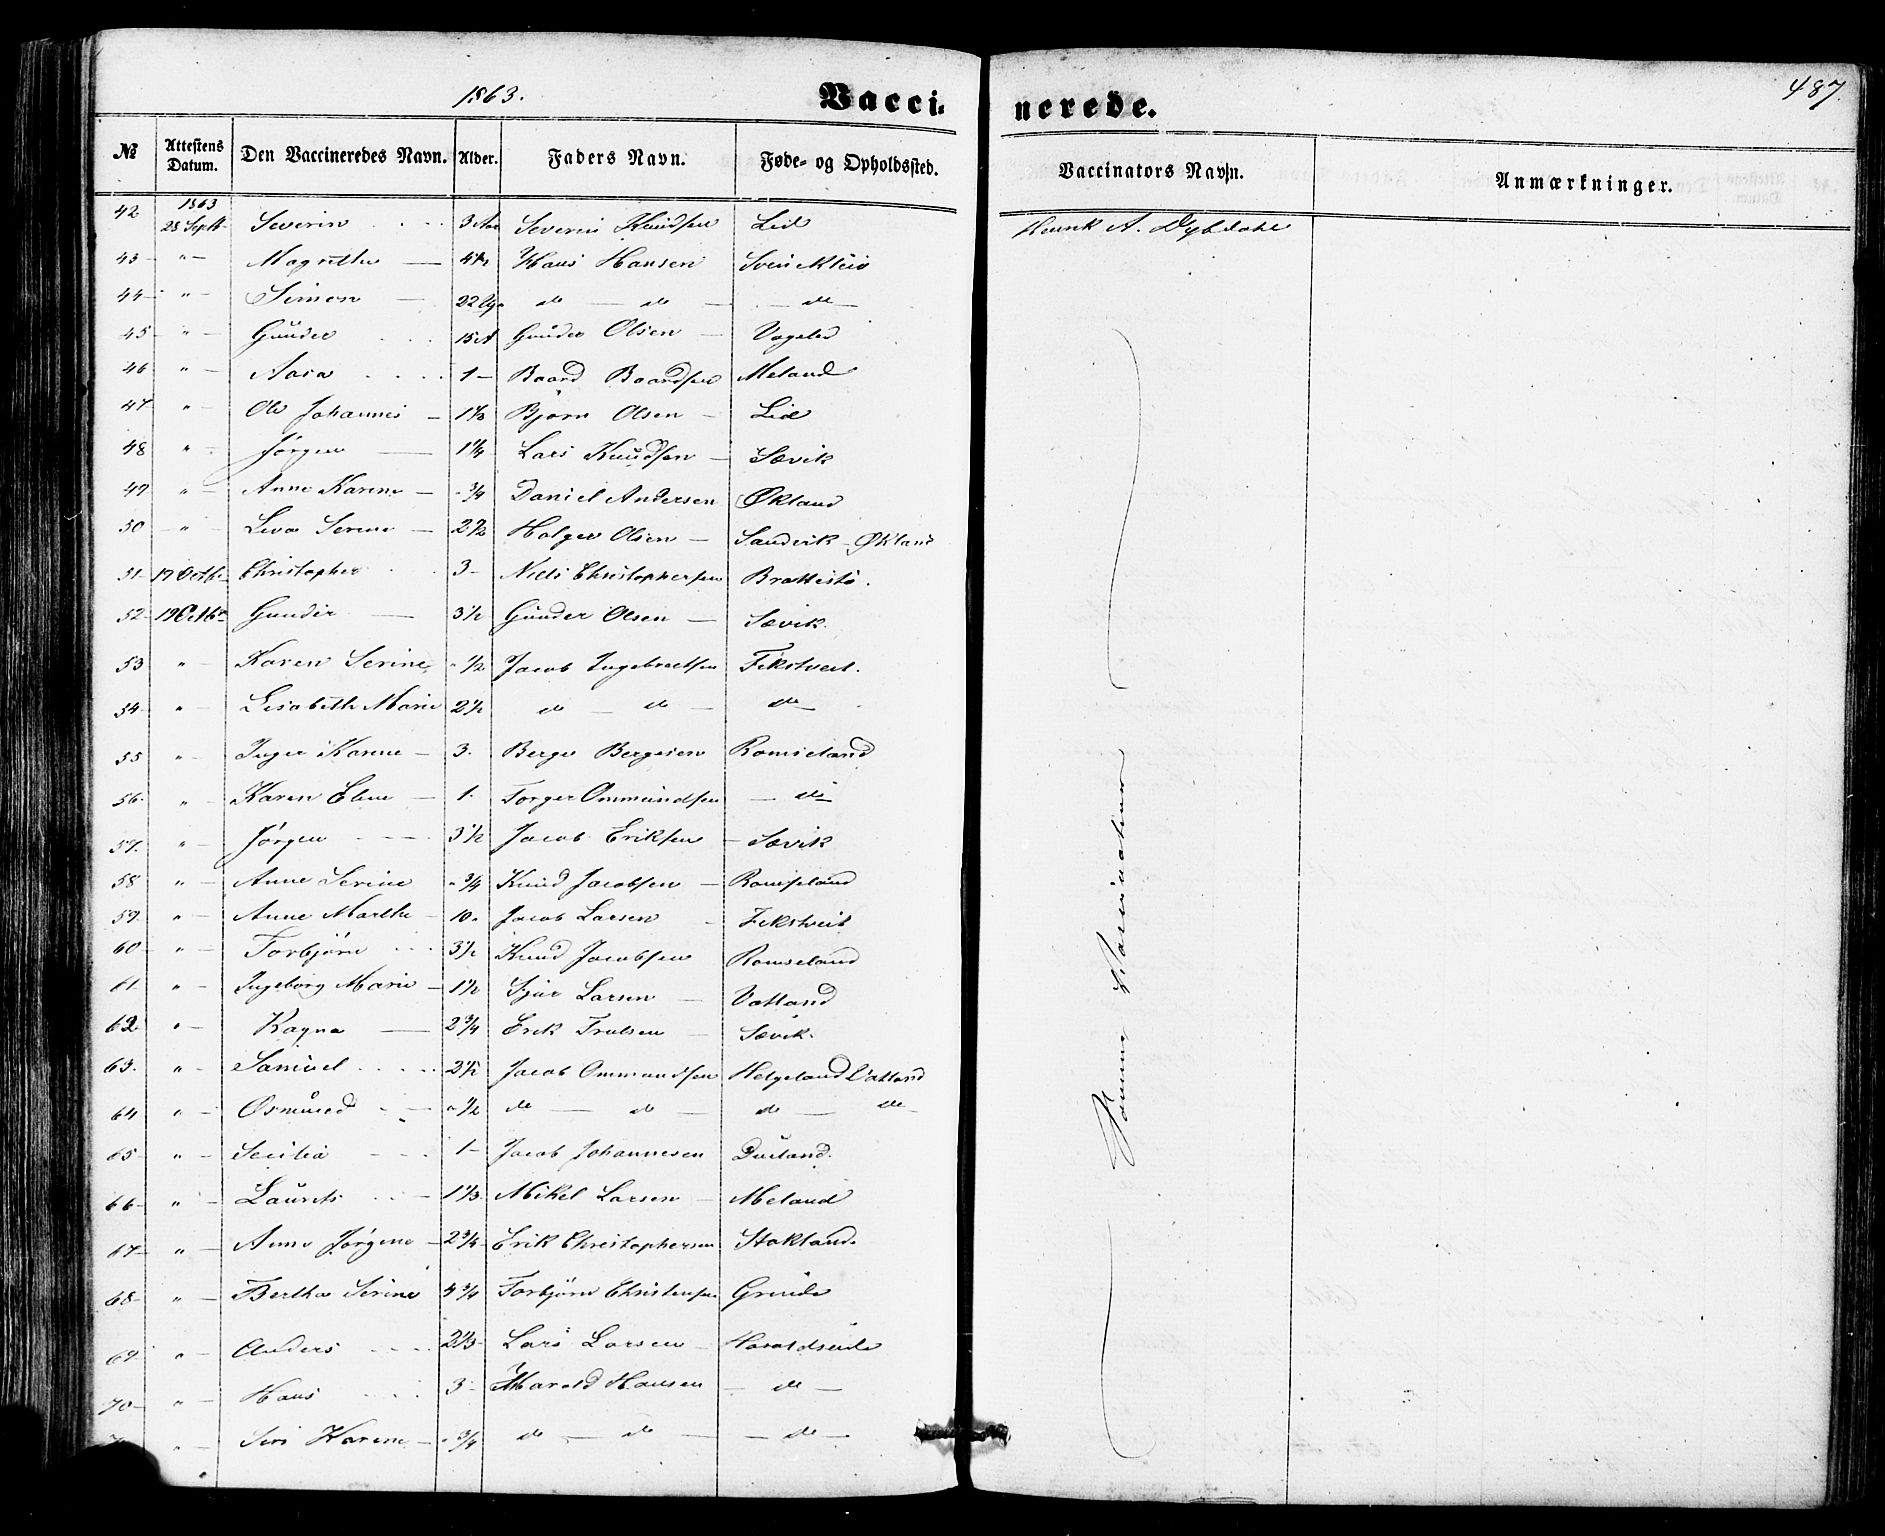 1863.
Vacci-
nerede.
487.
№ Attestens Datum. Den Vaccineredes Navn. Alder. Faders Navn. Føde- og Opholdssted. Vaccinators Navn. Anmærkninger.
1863
42 28 Septr Severin 3 Aar Severin Knudsen Lid Henrik A. Dybdahl
43 " Magrethe Hans Hansen
44 " Simen do do do
45 " Gunder 15 Gunder Olsen
46 " Aasa 1 Baard Baardsen Meland
47 " Ole Johannes 1 1/3 Bjørn Olsen Lid
48 " Jørgen 1 1/4 Lars Knudsen Sævik
49 " Anne Karine " 3/4 Daniel Andersen Økland
50 " Serine 2 1/2 Holger Olsen Sandvik Økland
51 17 Octbr Christopher 3 Niels Christophersen Brattestø.
52 19 Octbr Gunder 3 1/2 Gunder Olsen Sævik.
53 " Karen Serine " 1/2 Jacob Ingebretsen Fikstveit.
54 " Lisabeth Marie 2 1/2 do do do
55 " Inger Karine 3. Berge Bergesen Romseland
56. " Karen Eline 1. Torger Ommundsen do
57. " Jørgen 3 1/2 Jacob Eriksen Sævik
58 " Anne Serine " 3/4 Knud Jacobsen Romseland
59. " Anne Marthe 10. Jacob Larsen Fikstveit
60 " Torbjørn 3 1/2 Knud Jacobsen Romseland
61. " Ingeborg Marie 1 1/2 Sjur Larsen Vatland
62 " Ragna 2 3/4 Erik Trulsen Sævik.
63. " Samuel 2 1/2 Jacob Ommundsen Helgeland Vatland
64 " Osmund " 1/2 do do do do
65 " Secilia 1 Jacob Johannesen
66 " Laurits 1 1/3 Mikel Larsen Meland
67 " Anne Jørgine 2 3/4 Erik Christophersen Stokland
68 " Bertha Serine 3/4 Torbjørn Christensen Grinde
69. " Anders 2 1/3 Lars Larsen Haraldseide
70 " Hans 3 Harald Hansen do
" Siri Karine " 3/4 do do do
Samme Vaccinateur